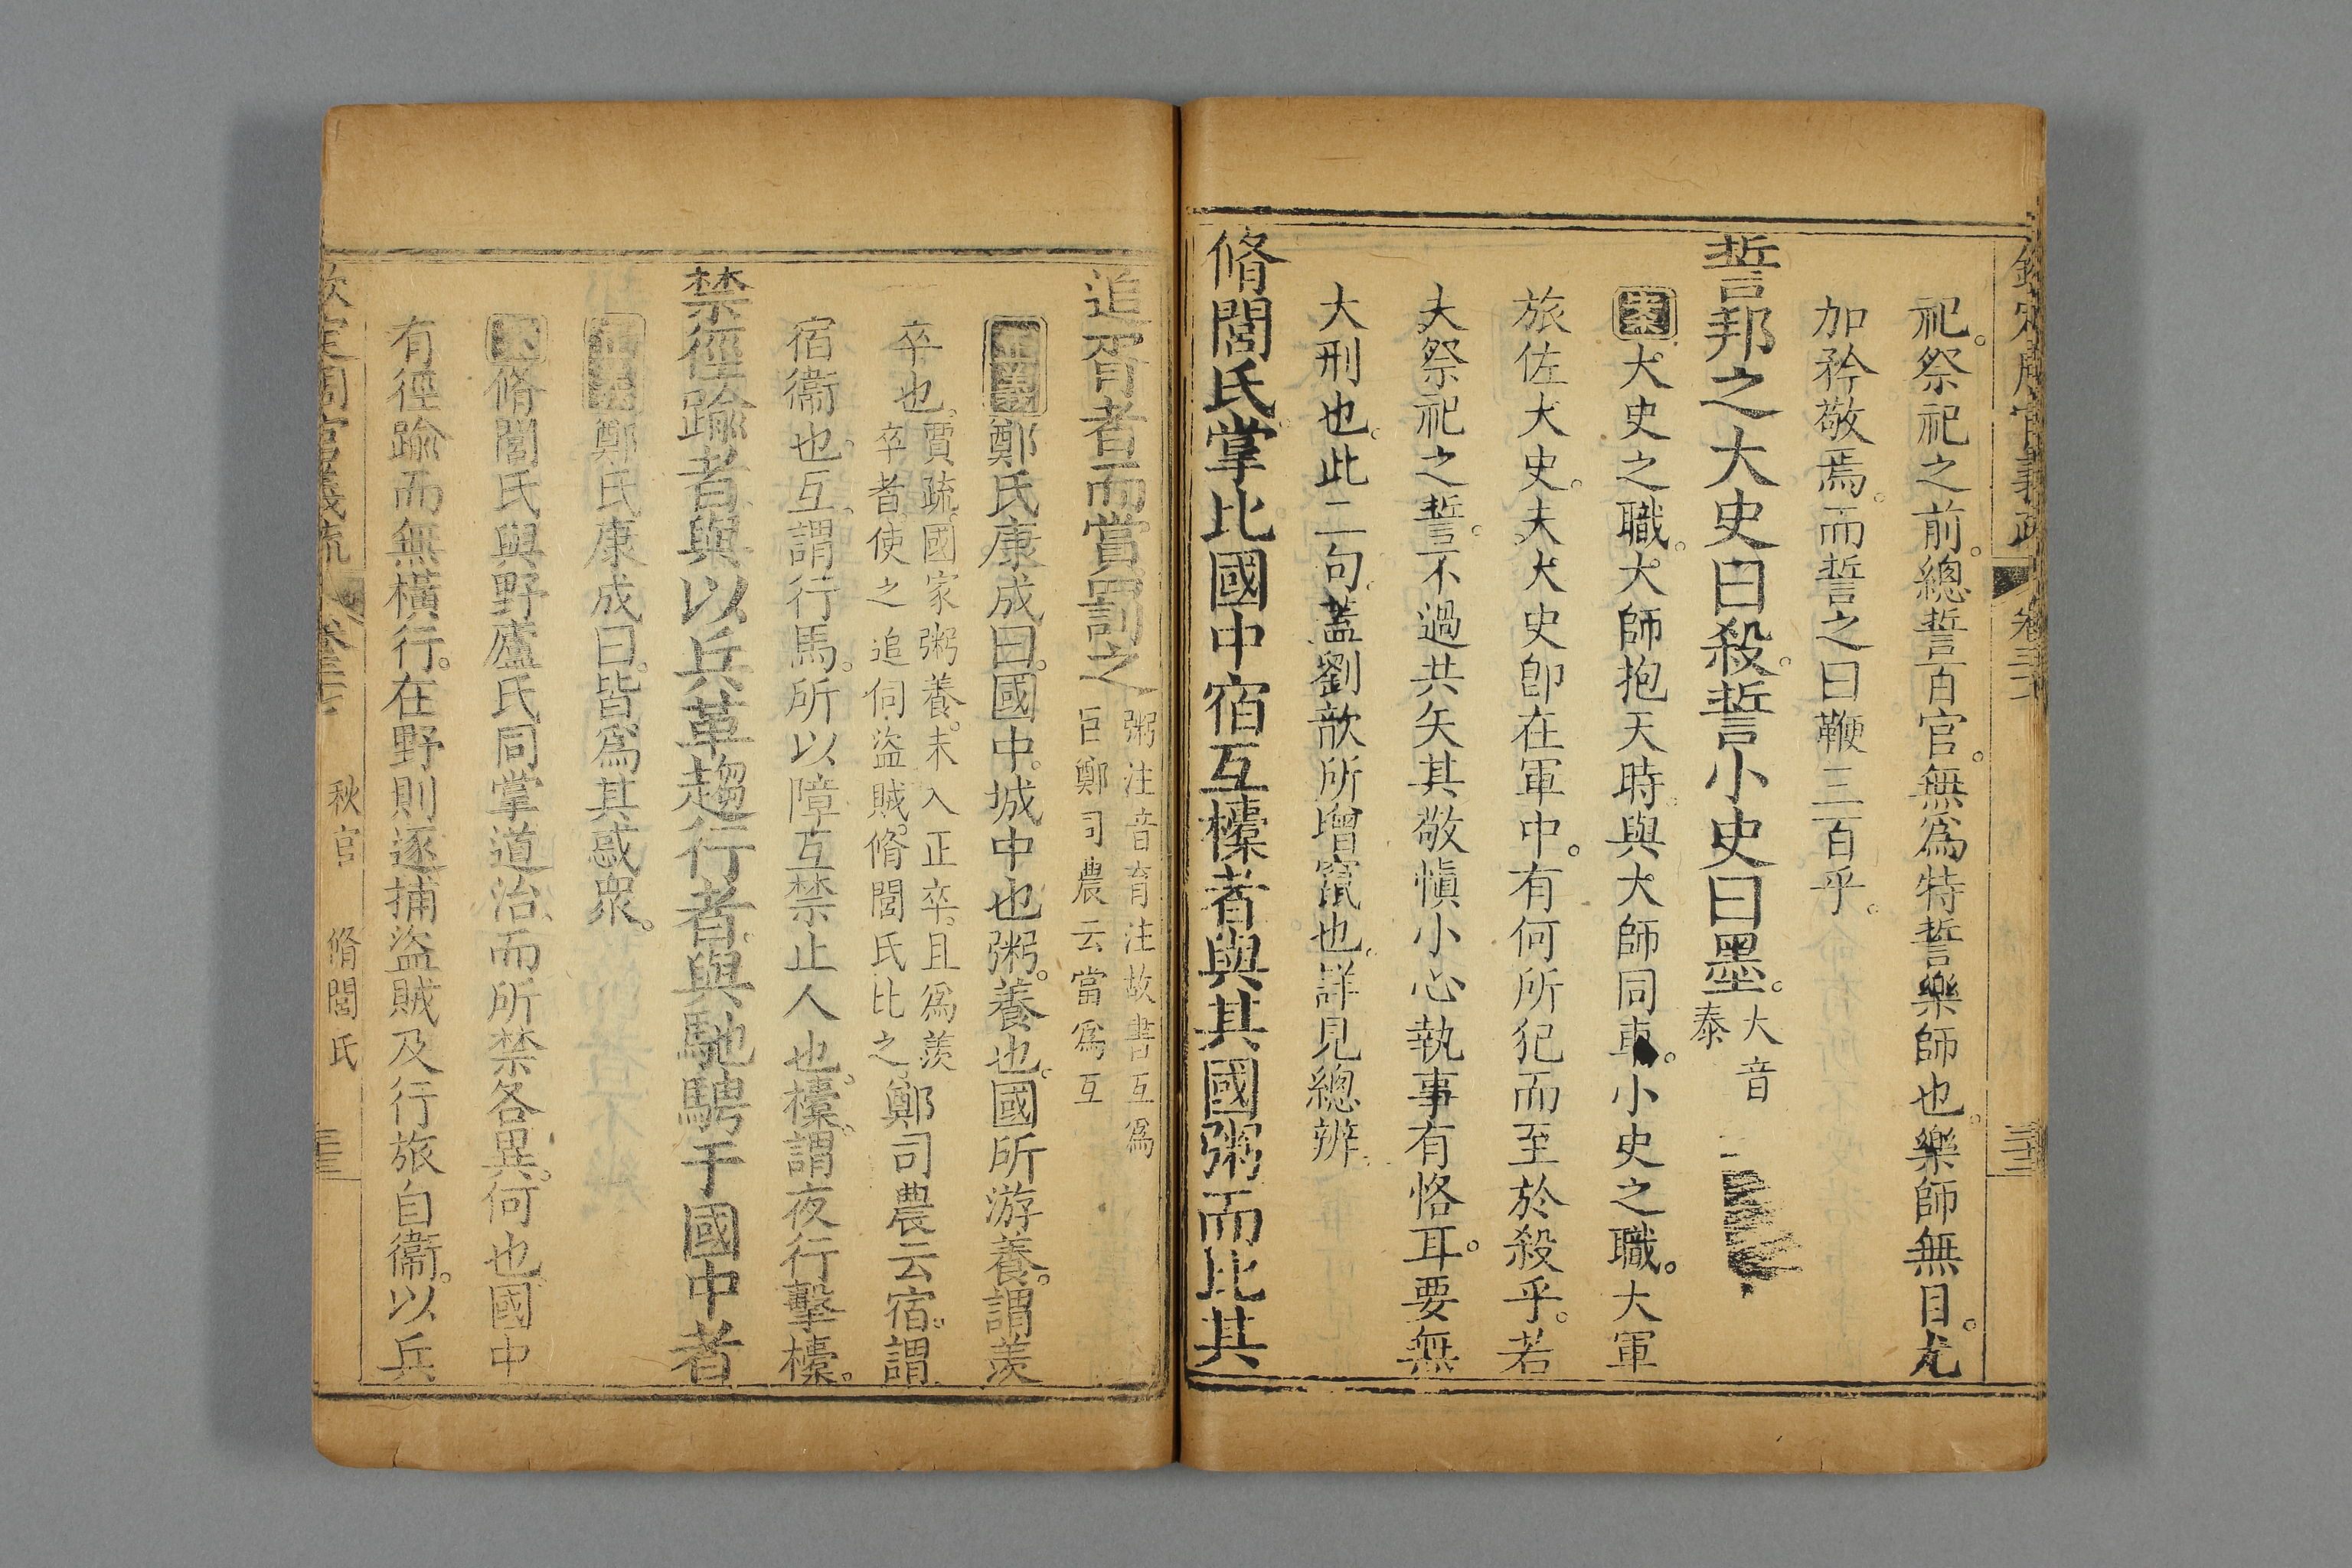 欽定周官義疏 卷三十 三十二
祀祭祀之前總誓百官無為特誓樂師也樂師無目尤
加矜敬焉而誓之曰鞭三百乎
誓邦之大史曰殺誓小史曰墨大音泰
大史之職大師抱天時與大師同車小史之職大軍
旅佐大史夫大史卽在軍中有何所犯而至於殺乎若
大祭祀之誓不過共失其敬愼小心執事有恪耳要無
大刑也此二句蓋劉歆所增竄也詳見總辨
脩閭氏掌比國中宿互櫜者與其國粥而比其
追胥者而賞罰之粥注音育注故書互爲
巨鄭司農云當爲互
正義鄭氏康成曰國中城中也粥養也國所游養謂羨
卒也賈疏國家粥養未入正卒且爲羨
卒者使之追伺盜賊脩閭氏比之鄭司農云宿謂
宿衞也互謂行馬所以障互禁止人也櫜謂夜行擊櫜
禁徑踰者與以兵革趨行者與馳騁于國中者
鄭氏康成曰皆爲其惑衆
脩閭氏與野廬氏同掌道治而所禁各異何也國中
有徑踰而無橫行在野則逐捕盜賊及行旅自衞以兵
欽定周官義疏 秋官 脩閭氏 三十三